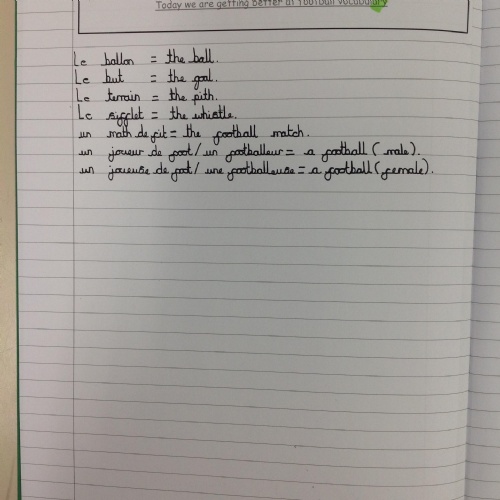 Today we are getting better at football vocabulary
Le ballon = the ball.
Le but = the goal.
Le terrain = the pith.
Le sifflet = the whistle.
un math de fit = the football match.
un joueur de foot / un footballeur = a football (male).
un joueuse de foot / une footballeuse = a football (female).